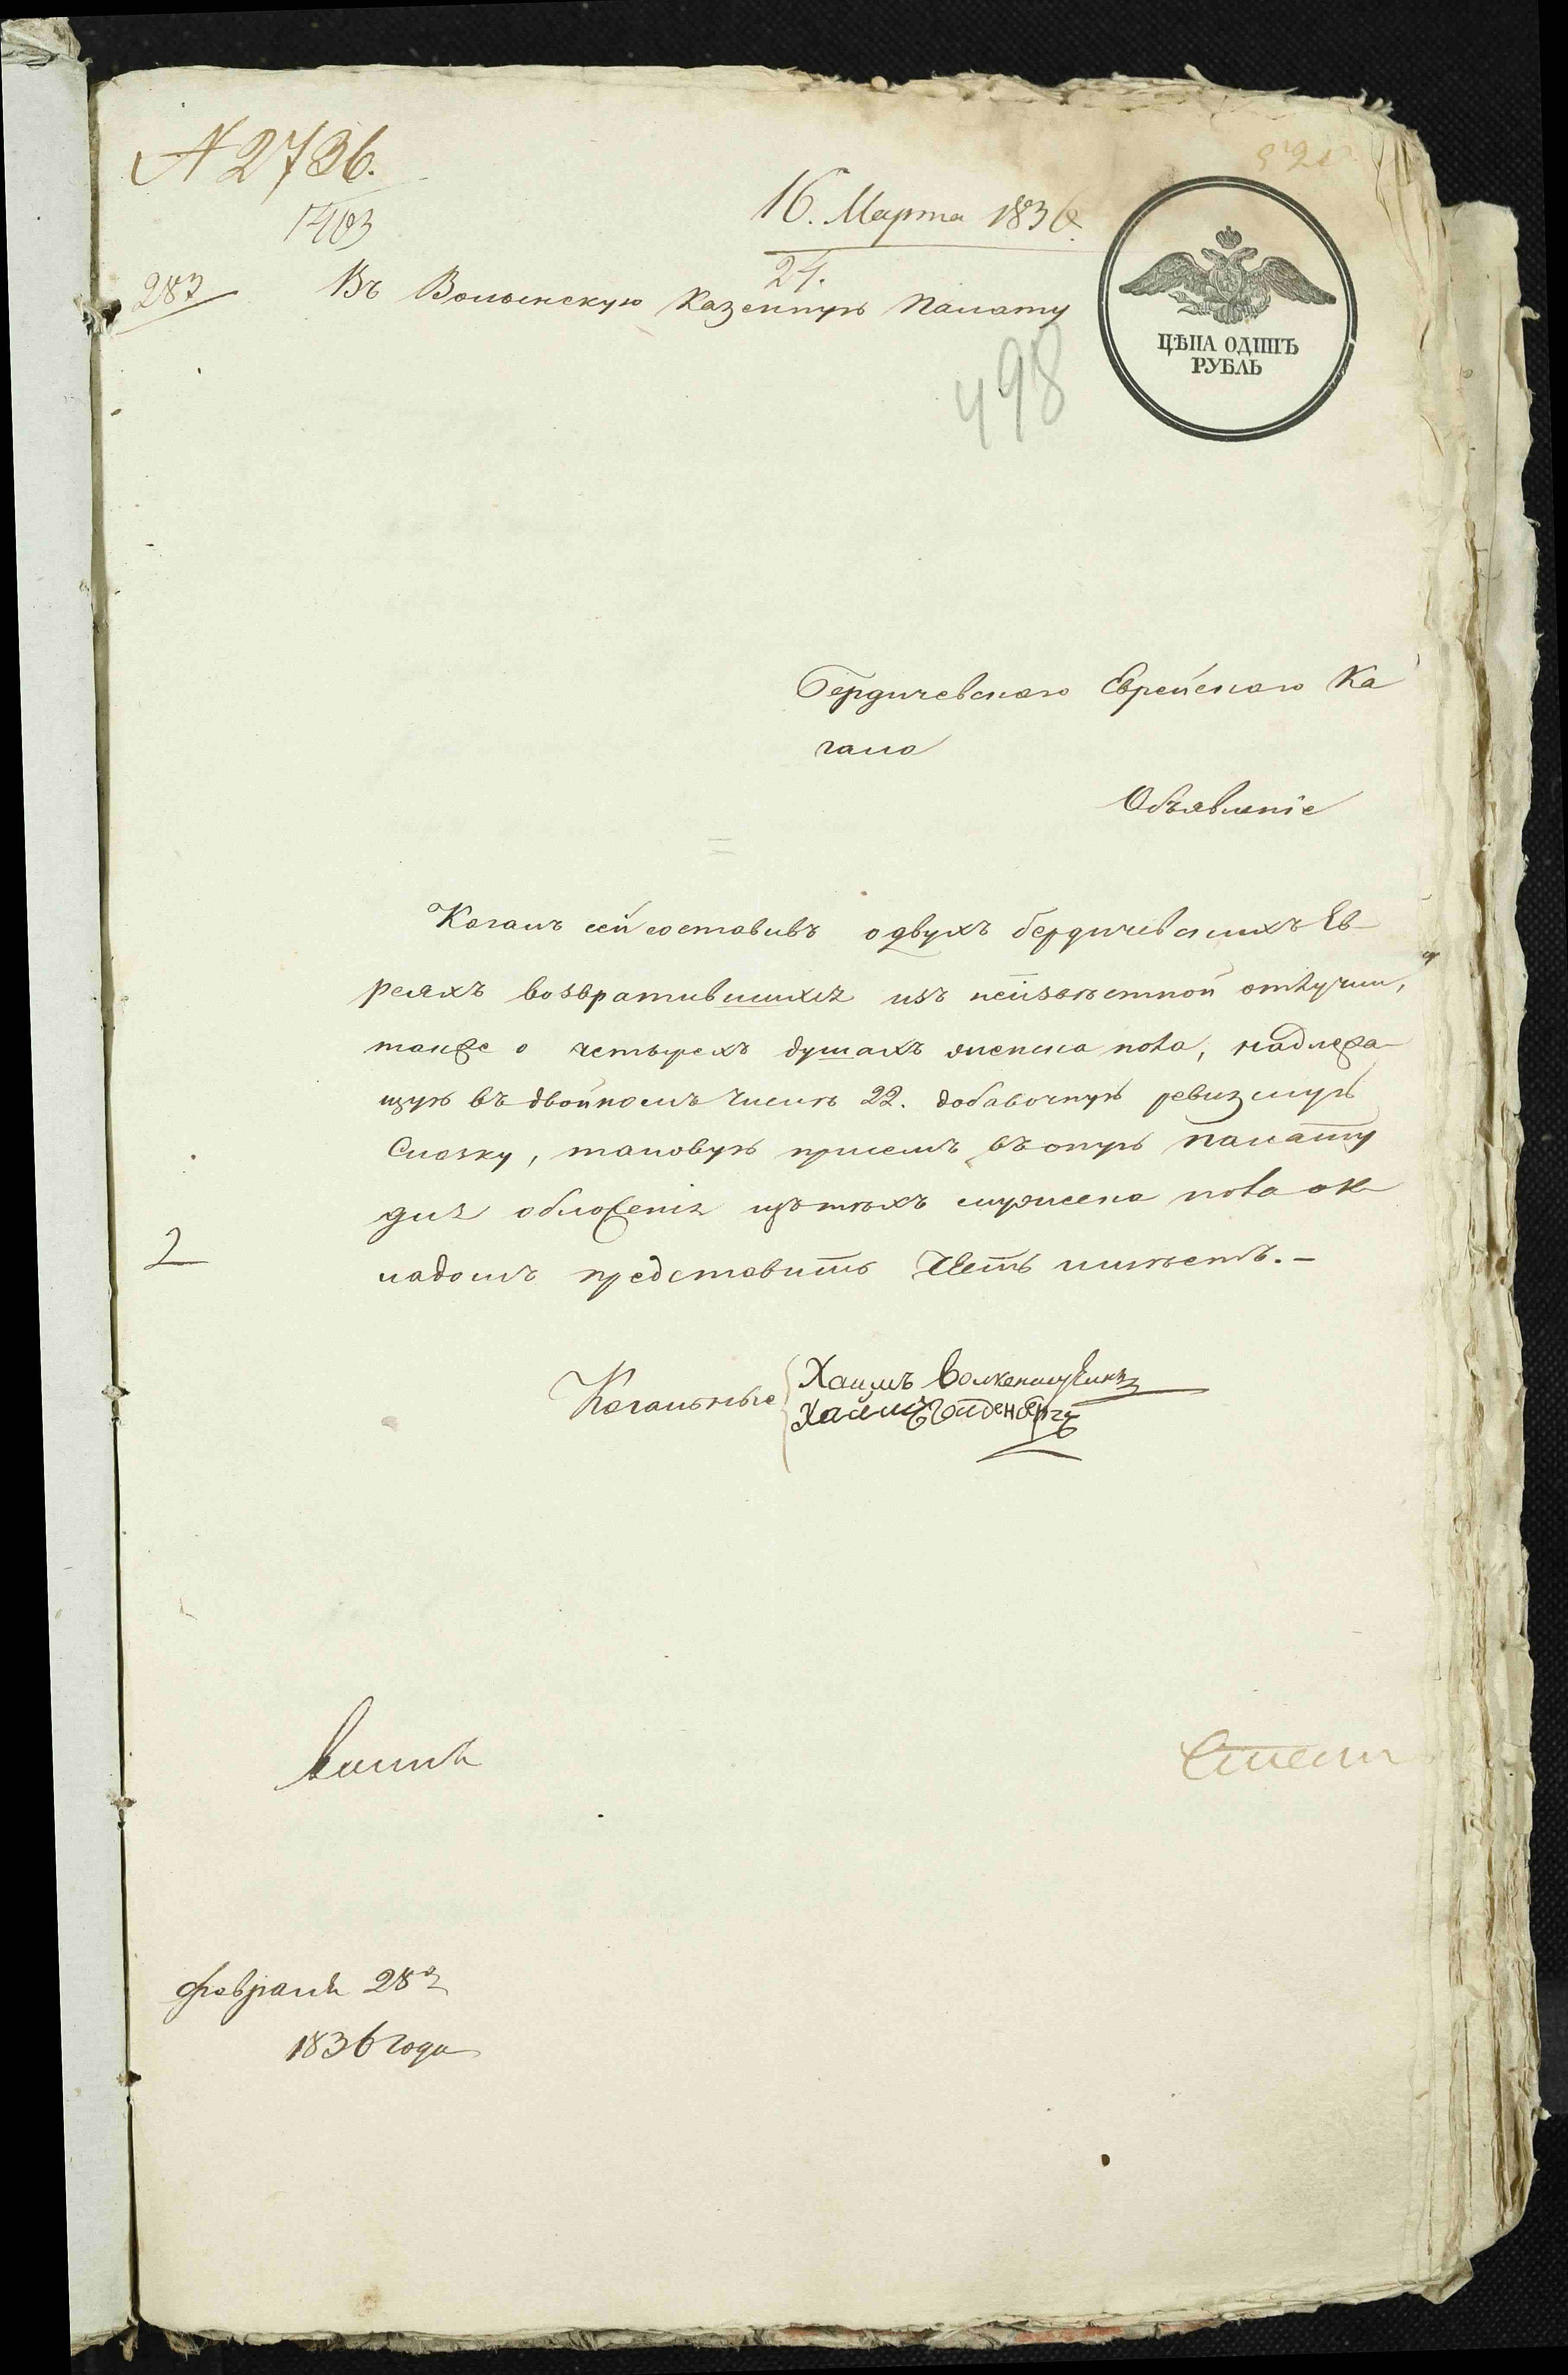 № 2736.
1403
16. Марта 1836.
24.
283
Въ Волынскую Казенную Палату
ЦѢНА ОДИНЪ
РУБЛЬ
498
Бердичевскаго Еврейскаго Ка
гала
Объявленіе
Кагалъ сей составивъ о двухъ бердичевскихъ Ев-
реяхъ возвратившихся изъ неизвѣстной отлучки,
также о четырехъ душахъ женска пола, надлежа-
щую въ двойномъ числѣ 22. добавочную ревизскую
Сказку, таковую присемъ въ оную палату
для обложенія изъ нихъ мужеска пола ок
ладомъ представить Честь имѣетъ.-
2
Кагальные Хаимъ Волкенштейнъ
Хаимъ Голденбергъ
февраля 28го
1836 года